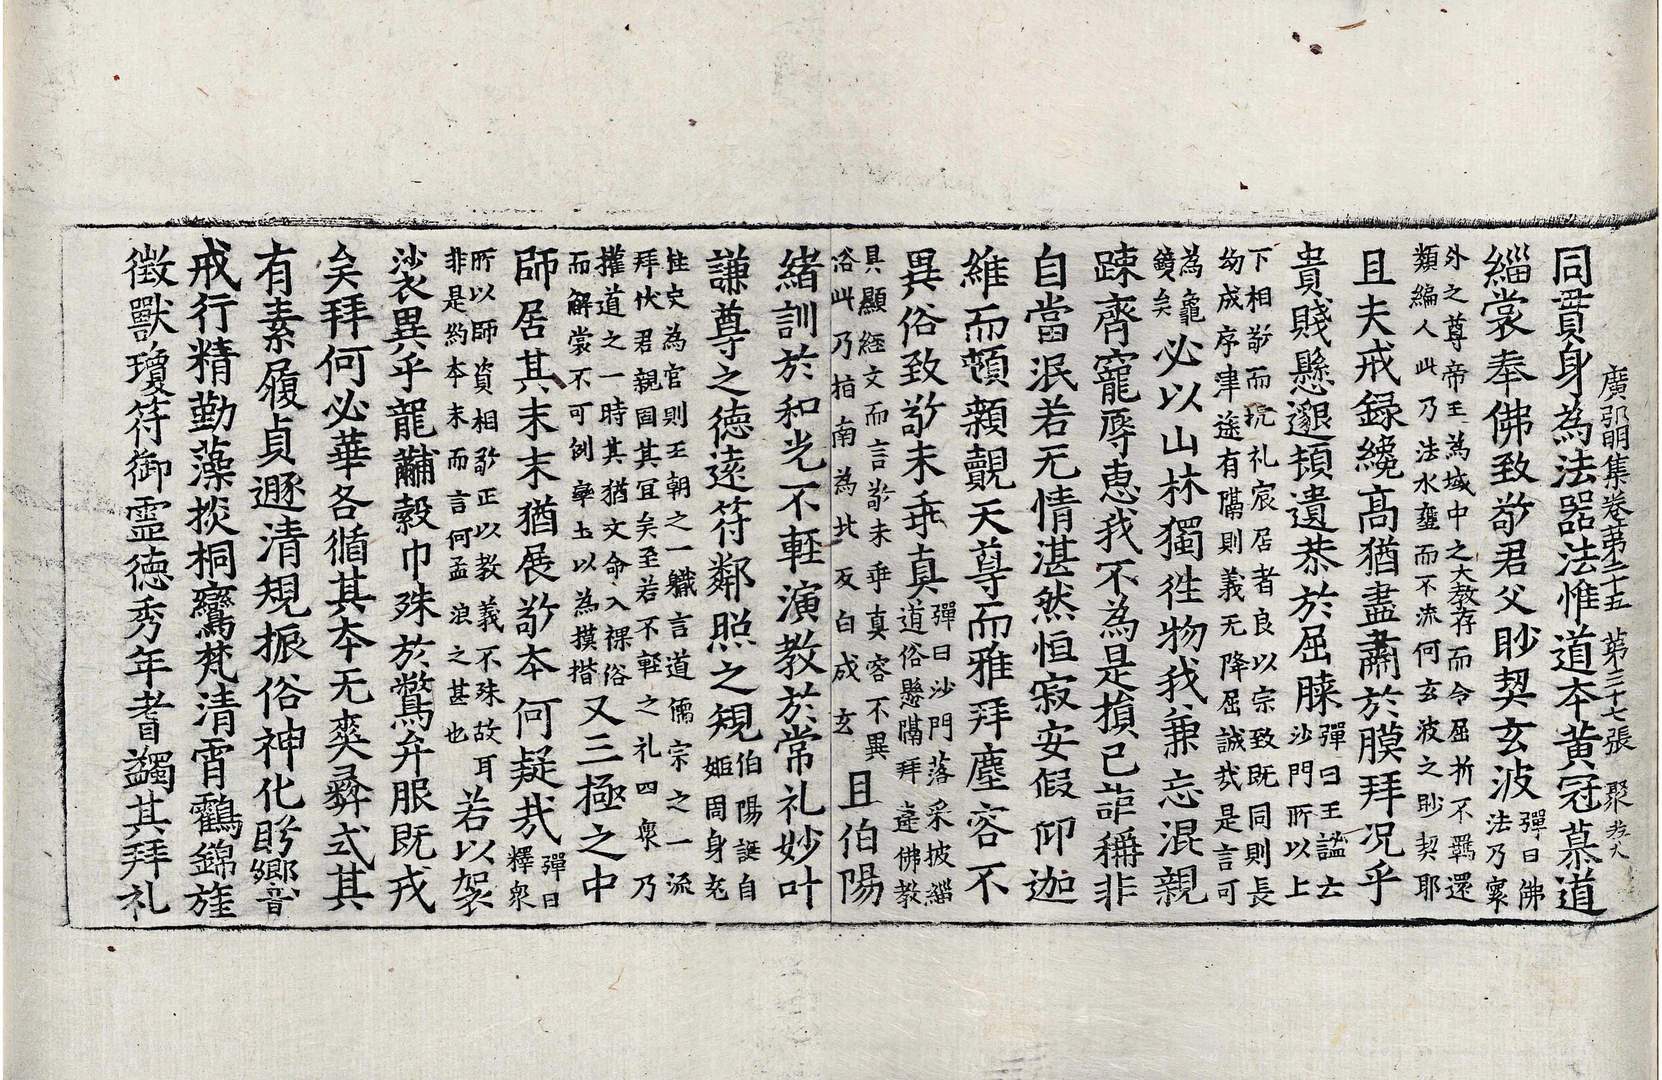 廣弘明集卷第二十五　第三十七張　聚
同貫身為法器法惟道本黃冠慕道
緇裳奉佛致敬君父眇契玄波彈曰佛法乃寰
外之尊帝王為域中之大教存而令屈折不羈還
類編人此乃法水壅而不流何玄波之眇契耶
且夫戒録纔高猶盡肅於膜拜况乎
貴賤懸邈頓遺恭於屈膝彈曰王謐云沙門所以上
下相敬而抗礼宸居者良以宗致既同則長
幼成序津途有隔則義无降屈誠哉是言可
為龜鏡矣必以山林獨徃物我兼忘混親
踈齊寵辱惠我不為是損己詎稱非
自當泯若无情湛然恒寂安假仰迦
維而頓顙覿天尊而雅拜塵容不
異俗致敬未乖真彈曰沙門落采披緇道俗懸隔拜違佛教
具顯經文而言敬未乖真容不異
俗此乃指南為北反白成玄且伯陽
緒訓於和光不輕演教於常礼妙叶
謙尊之德遠符鄰照之規伯陽誕自姬周身充
柱史為官則王朝之一職言道儒宗之一流
拜伏君親固其冝矣至若不輕之礼四衆乃
權道之一時其猶文命入裸俗
而解裳不可例率土以為摸揩又三極之中
師居其末末猶展敬本何疑哉彈曰釋衆
所以師資相敬正以教義不殊故耳
非是約本末而言何孟浪之甚也若以袈
裟異乎龍黼縠巾殊於鷩弁服既戎
矣拜何必華各循其本无爽彛式其
有素履貞遯清規振俗神化肸蠁
戒行精勤藻掞桐鸞梵清霄鸖錦旌
徵獸瓊符御霊德秀年耆蠲其拜礼